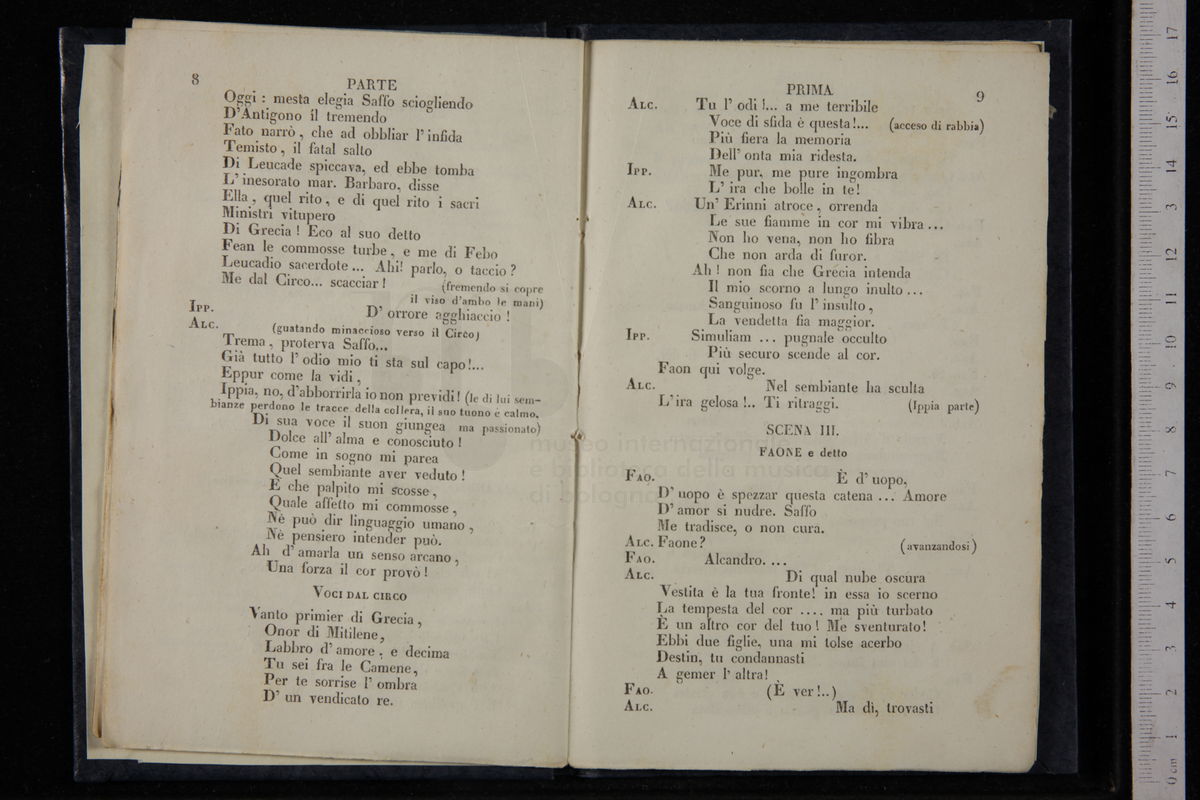 8
PARTE
Oggi : mesta elegia Saffo sciogliendo
D'Antigono il tremendo
Fato narrò, che ad obbliar l'infida
Temisto, il fatal salto
Di Leucade spiccava, ed ebbe tomba
L'inesorato mar. Barbaro, disse
Ella, quel rito, e di quel rito i sacri
Ministri vitupero
Di Grecia ! Eco al suo detto
Fean le commosse turbe, e me di Febo
Leucadio sacerdote... Ahi! parlo, o taccio ?
Me dal Circo... scacciar ! (fremendo si copre
il viso d'ambo le mani)
IPP. D' orrore agghiaccio !
ALC. (guatando minaccioso verso il Circo)
Trema, proterva Saffo...
Già tutto l'odio mio ti sta sul capo!...
Eppur come la vidi,
Ippia, no, d'abborrirla io non previdi! (le di lui sem-
bianze perdono le tracce della collera, il suo tuono è calmo,
Di sua voce il suon giungea ma passionato)
Dolce all' alma e conosciuto !
Come in sogno mi parea
Quel sembiante aver veduto !
E che palpito mi scosse,
Quale affetto mi commosse,
Nè può dir linguaggio umano,
Nè pensiero intender può.
Ah d' amarla un senso arcano,
Una forza il cor provò !
VOCI DAL CIRCO
Vanto primier di Grecia,
Onor di Mitilene,
Labbro d' amore, e decima
Tu sei fra le Camene,
Per te sorrise l' ombra
D' un vendicato re.
PRIMA
9
ALC. Tu l' odi !... a me terribile
Voce di sfida è questa!... (acceso di rabbia)
Più fiera la memoria
Dell' onta mia ridesta.
IPP. Me pur, me pure ingombra
L' ira che bolle in te!
ALC. Un' Erinni atroce, orrenda
Le sue fiamme in cor mi vibra...
Non ho vena, non ho fibra
Che non arda di furor.
Ah ! non fia che Grecia intenda
Il mio scorno a lungo inulto...
Sanguinoso fu l' insulto,
La vendetta fia maggior.
IPP. Simuliam ... pugnale occulto
Più securo scende al cor.
Faon qui volge.
ALC. Nel sembiante ha sculta
L'ira gelosa !.. Ti ritraggi. (Ippia parte)
SCENA III.
FAONE e detto
FAO. È d' uopo,
D' uopo è spezzar questa catena ... Amore
D' amor si nudre. Saffo
Me tradisce, o non cura.
ALC. Faone ? (avanzandosi)
FAO. Alcandro. ...
ALC. Di qual nube oscura
Vestita è la tua fronte! in essa io scerno
La tempesta del cor .... ma più turbato
È un altro cor del tuo ! Me sventurato!
Ebbi due figlie, una mi tolse acerbo
Destin, tu condannasti
A gemer l' altra!
FAO. (È ver!..)
ALC. Ma dì, trovasti
museo internazionale
e biblioteca della musica
di bologna
0 cm 1 2 3 4 5 6 7 8 9 10 11 12 3 14 15 16 17